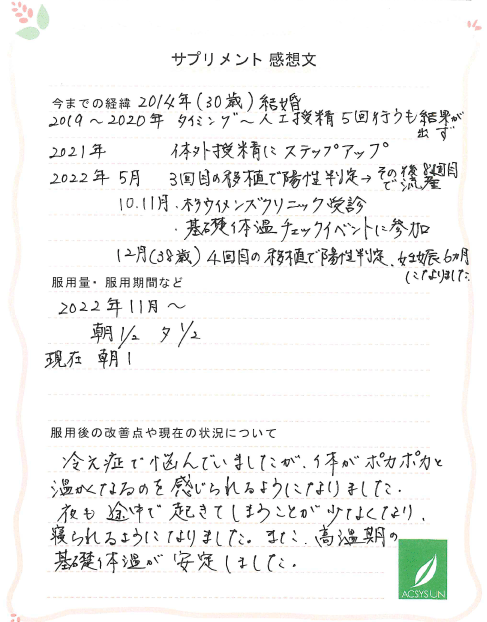 サプリメント 感想文
今までの経緯 2014年(30歳)結婚
2019〜2020年 タイミング〜人工授精5回行うも結果が
出ず
2021年 体外授精にステップアップ
2022年 5月 3回目の移植で陽性判定→その後 8週目
で流産
10.11月・杉ウイメンズクリニック受診
・基礎体温チェックイベントに参加
12月(38歳)4回目の移植で陽性判定、妊娠6ヵ月
になりました
服用量・服用期間など
2022年11月〜
朝1/2 夕1/2
現在 朝1
服用後の改善点や現在の状況について
冷え症で悩んでいましたが、体がポカポカと
温かくなるのを感じられるようになりました。
夜も途中で起きてしまうことが少なくなり、
寝られるようになりました。また、高温期の
基礎体温が安定しました。
ACSYSUN